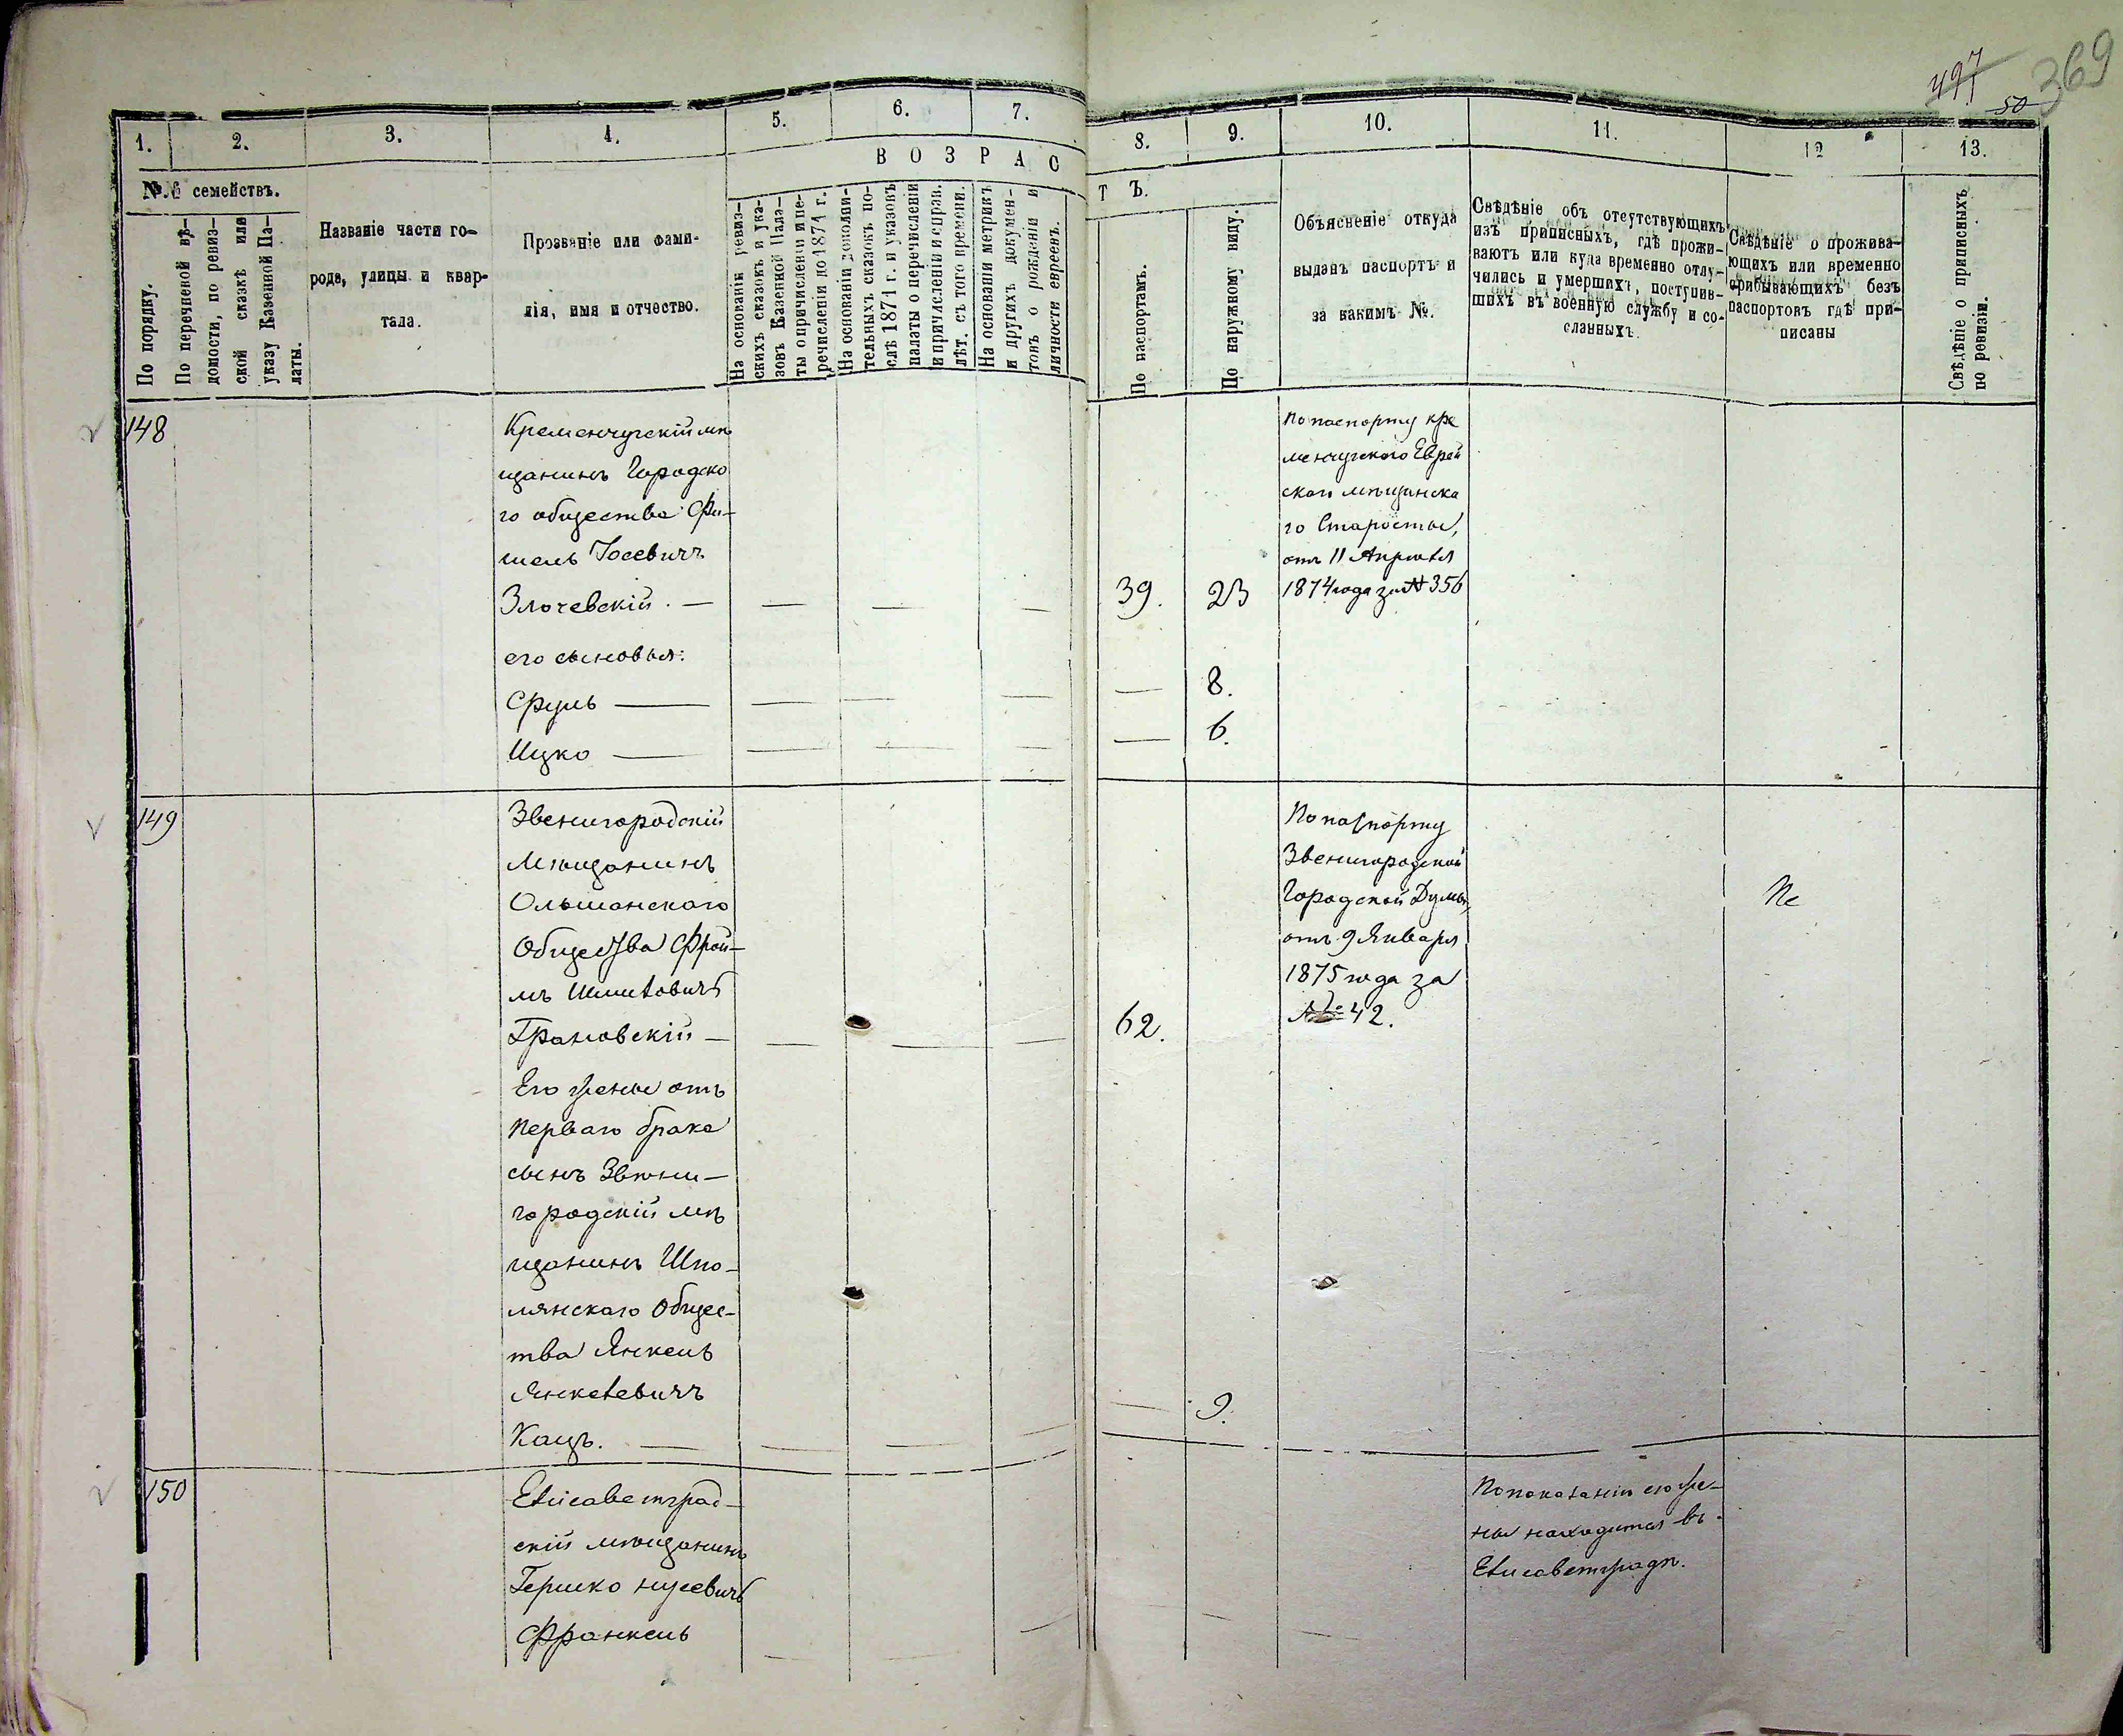 497 50 369
1. 2. 3. 4. 5. 6. 7. 8. 9. 10. 11. 12 13.
№.№ семействъ.
По порядку.
По перечневой вѣ-
домости, по ревиз-
ской сказкѣ или
указу Казенной Па-
латы.
Названіе части го-
рода, улицы и квар-
тала.
Прозваніе или фами-
лія, имя и отчество.
ВОЗРАСТЪ.
На основаніи ревиз-
скихъ сказокъ и ука-
зовъ Казенной Пала-
ты о причисленіи и пе-
речисленіи до 1871 г.
На основаніи дополни-
тельныхъ сказокъ по-
слѣ 1871 г. и указовъ
палаты о перечисленіи
и причисленіи и справ.
лѣт. съ того времени.
На основаніи метрикъ
и другихъ докумен-
товъ о рожденіи и
личности евреевъ.
По паспортамъ.
По наружному виду.
Объясненіе откуда
выданъ паспортъ и
за какимъ №.
Свѣдѣніе объ отсутствующихъ
изъ приписныхъ, гдѣ прожи-
ваютъ или куда временно отлу-
чились и умершихъ, поступив-
шихъ въ военную службу и со-
сланныхъ.
Свѣдѣніе о прожива-
ющихъ или временно
прибывающихъ безъ
паспортовъ гдѣ при-
писаны
Свѣдѣніе о приписныхъ
по ревизіи.
148
Кременчугскій мѣ
щанинъ Городско
го общества Фи-
шель Іосевичъ
Злочевскій. — — — — 39. 23
его сыновья:
Сруль — — — — — 8.
Ицко — — — — — 6.
По паспорту кре
менчугского Еврей
скаго мѣщанска
го Старосты,
отъ 11 Апрѣля
1874 года за № 356
149
Звенигородскій
мѣщанинъ
Ольшанскаго
Общества Фрои-
мъ Шмилевичъ
Грановскій — — — — 62.
Его жены отъ
перваго брака
сынъ Звени-
городскій мѣ
щанинъ Шпо-
лянскаго Общес-
тва Янкель
Янкелевичъ
Кацъ. — — — — — 9.
По паспорту
Звенигородской
Городской Думы,
отъ 9 Января
1875 года за
№ 42.
150
Елисаветград-
скій мѣщанинъ
Гершко Нусевичъ
Франкель — — — — —
По показанію его же-
ны находится въ
Елисаветградѣ.